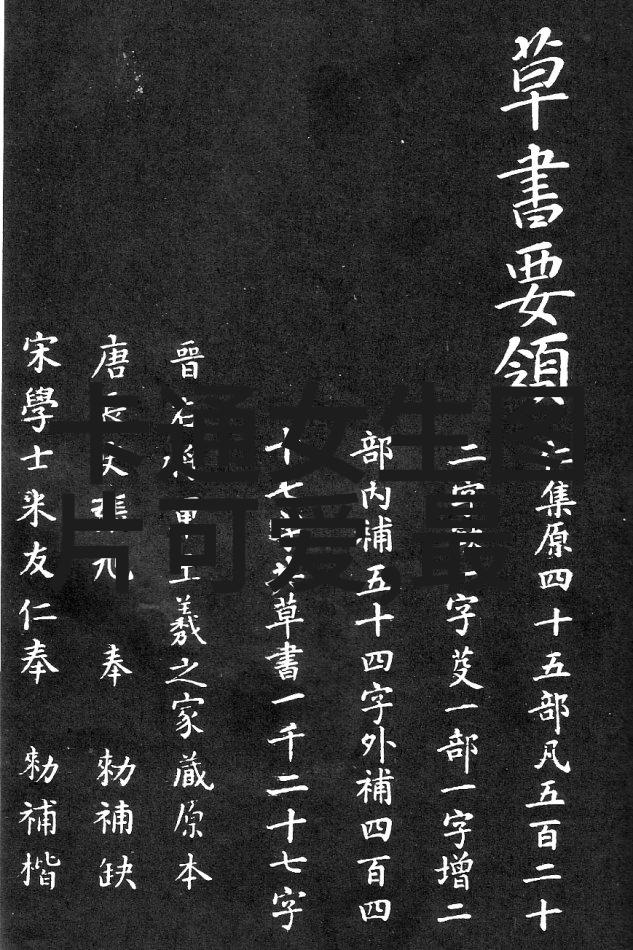 草書要領
集原四十五部凡五百二十
二字一字芟一部一字增二
部内補五十四字外補四百四
十七字共草書一千二十七字
晉右將軍王羲之家藏原本
唐長史張旭 奉 勅補缺
宋學士米友仁奉 勅補楷
卡通女生图
片可爱,最